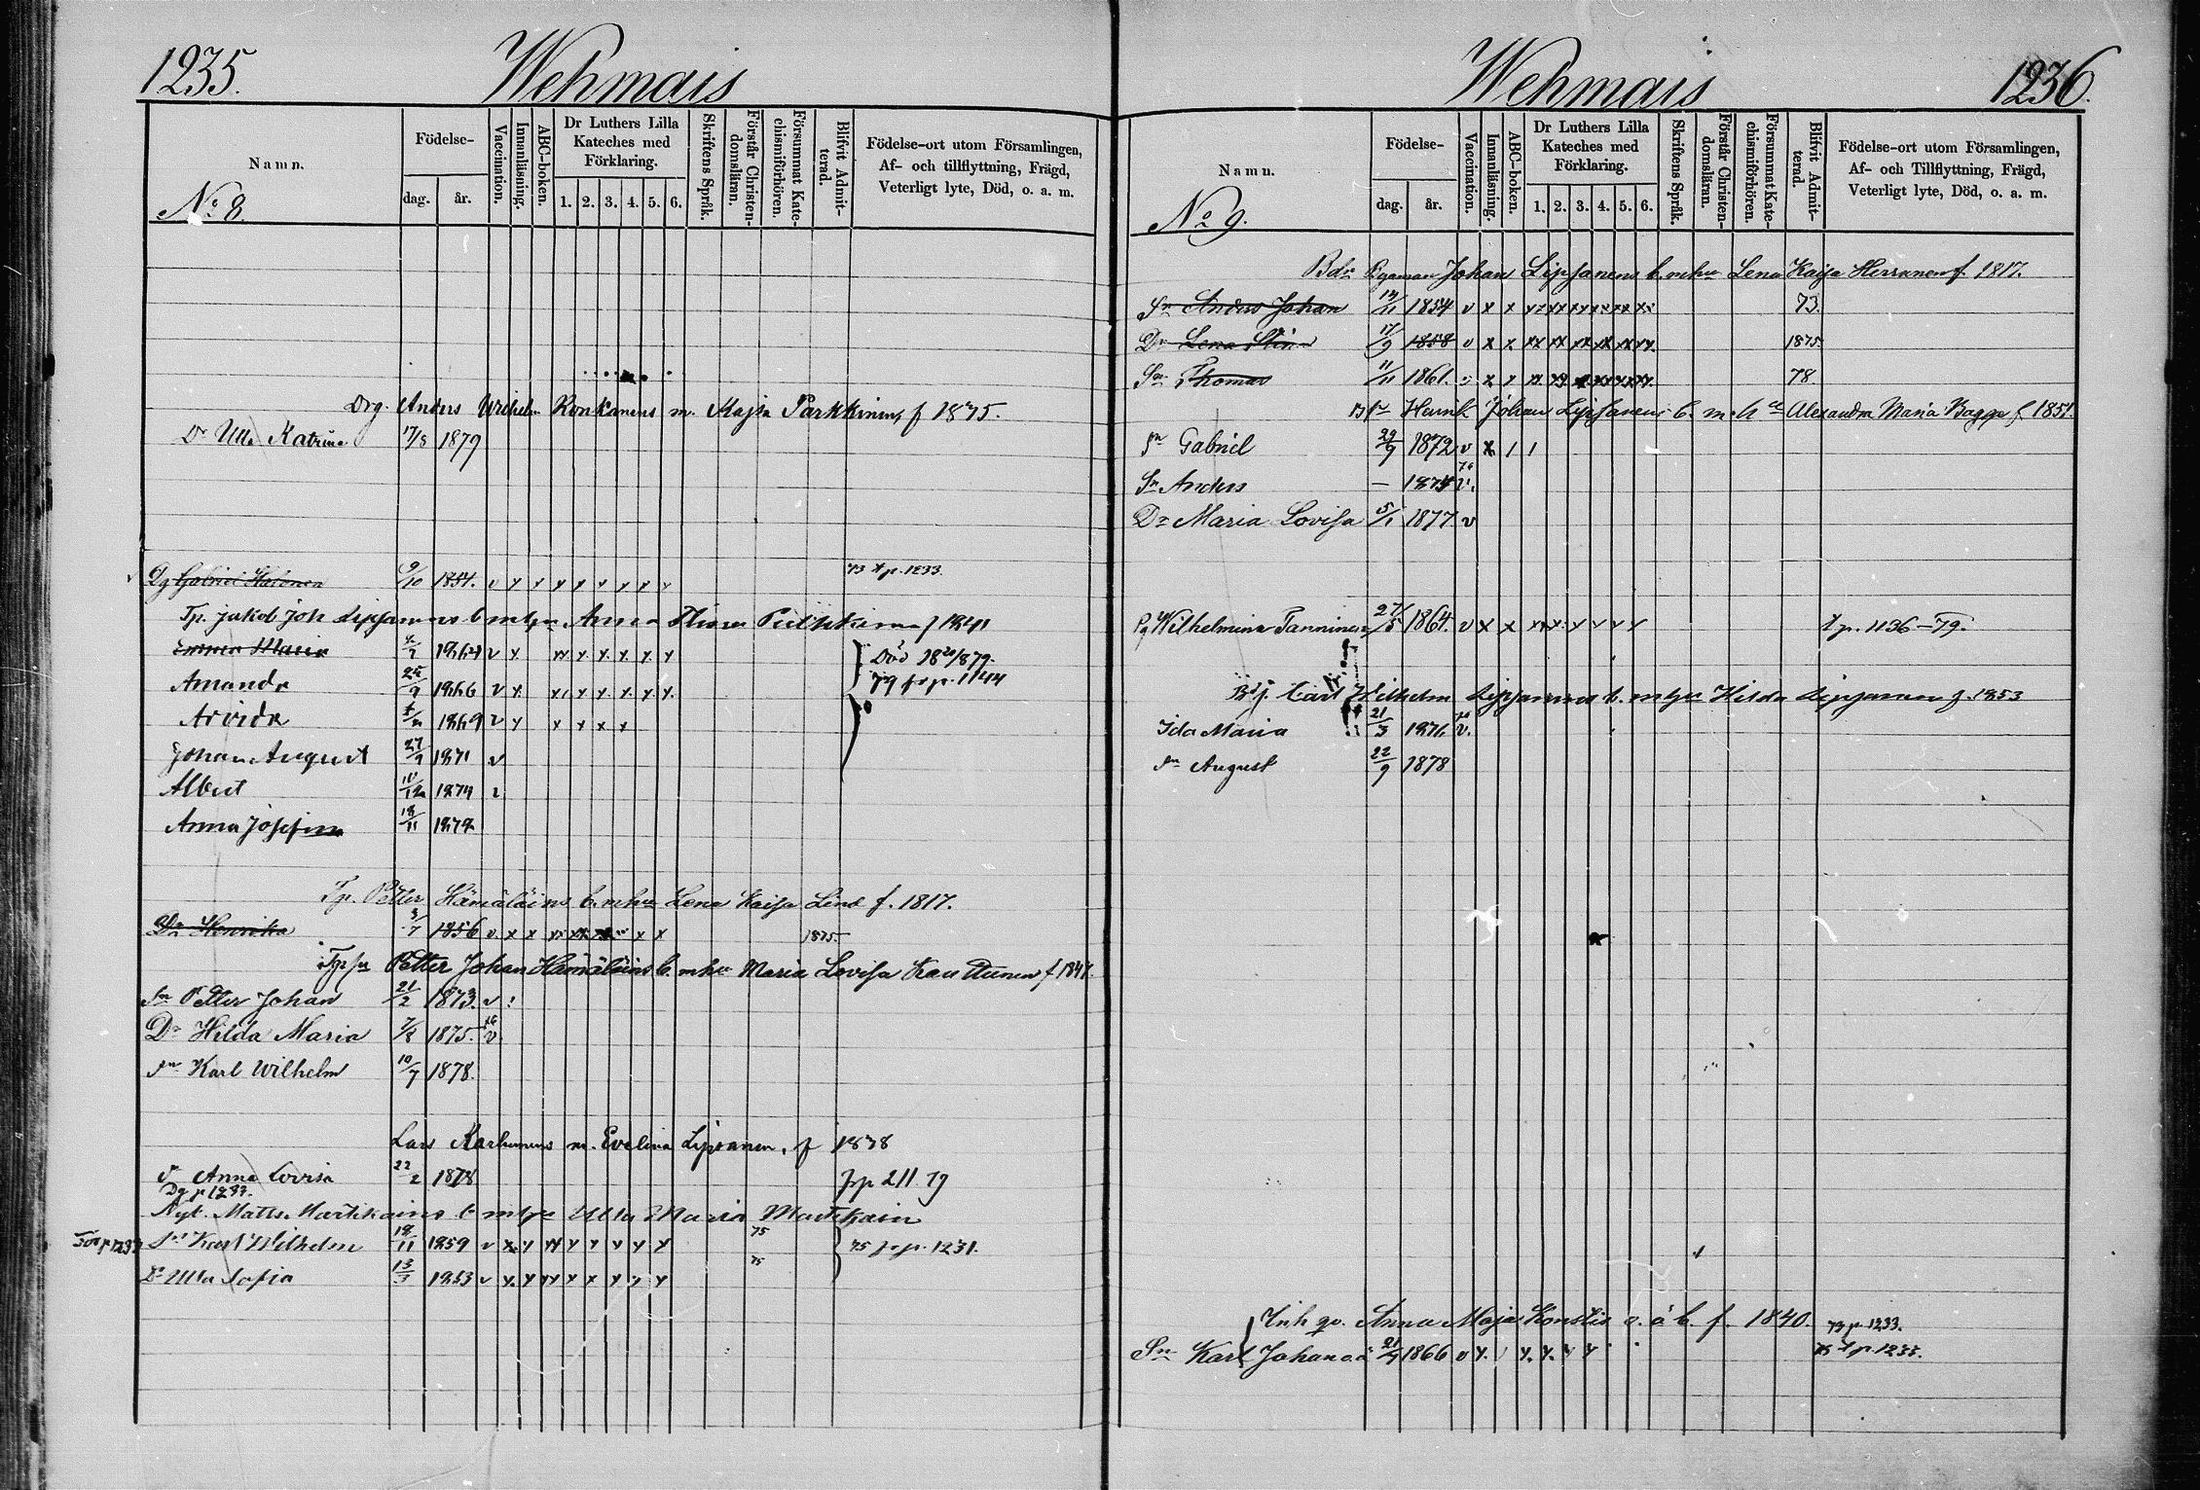 1235.
Wehmais
Namn.
Födelse-
dag.
år.
Vaccination.
Innanläsning.
ABC-boken.
Dr Luthers Lilla
Kateches med
Förklaring.
1. 2. 3. 4. 5. 6.
Skriftens Språk.
Förstår Christen-
domsläran.
Försummat Kate-
chismiförhören.
Blifvit Admit-
terad.
Födelse-ort utom Församlingen,
Af- och tillflyttning, Frägd,
Veterligt lyte, Död, o. a. m.
No 8.
Drg. Anders Wilhelm Ronkanens m. Kajsa Parkkinen, f 1875.
Dr Ulla Katrina 17/8 1879
Dg Gabriel Halonen 9/10 1854. v x x x x x x x x 73 p. 1233.
Tp. Jakob Joh Lipsanens b. m. Anna Stina Pitkänen f 1841
Emma Maria 1864 v x x x x x x x Död 18 20/8 79.
Amanda 25/9 1866 v x x x x x x x 79 p. 1144
Arvida 1869 v x x x x x
Johan August 27/9 1871 v
Albert 1874
Anna Josefina 18/11 1878
Tp. Petter Hämäläins b. mhu Lena Kaisa Lind f. 1817.
Dr Henrika 3/7 1856 v x x xx xx x x 1875.
Tp. sn Petter Johan Hämäläins b. mhu Maria Lovisa Kauttunen f 184
Sn Petter Johan 21/2 1873. v
Dr Hilda Maria 7/8 1875. v
Sn Karl Wilhelm 10/7 1878.
Lars Karhunens m. Evelina Lipsanen, f 1878
Dr Anna Lovisa 22/2 1878 p 211 79
Dg p 1233.
Matts. Martikains b Ulla Maria Martikain
Sn Karl Wilhelm 18/11 1859 v x x xx x x x x x 75 75 p. 1231.
Dr Ulla Sofia 13/3 1853 v x x xx x x x x x 75
Wehmais
1236.
Namn.
Födelse-
dag.
år.
Vaccination.
Innanläsning.
ABC-boken.
Dr Luthers Lilla
Kateches med
Förklaring.
1. 2. 3. 4. 5. 6.
Skriftens Språk.
Förstår Christen-
domsläran.
Försummat Kate-
chismiförhören.
Blifvit Admit-
terad.
Födelse-ort utom Församlingen,
Af- och Tillflyttning, Frägd,
Veterligt lyte, Död, o. a. m.
No 9.
Johan Lipsanens b. mhu Lena Kaisa Herranen f. 1817.
Sn Anders Johan 19/11 1854 v x x xx xx xx xx xx xx 73.
Dr Lena Stina 17/9 1858 v x x xx xx xx xx xx xx 1875
Sn Thomas 11/11 1861. v x x xx xx xx xx xx 78
Henrik Johan Lipsanens b. m. h Alexandra Maria Bagge f. 1851.
Sn Gabriel 29/9 1872 v x / /
Sn Anders — 1874 v.
Dr Maria Lovisa 5/1 1877 v
Pg Wilhelmina Tanninen 27/5 1864. v x x xx x x x x x p. 1136 – 79.
Carl Wilhelm Lipsanens b. m Hilda Lipsanen f. 1853
Ida Maria 21/3 1876 v.
Sn August 22/9 1878
Inh qv. Anna Maja Konstis o. ä b. f. 1840. 73 p. 1233.
Sn Karl Johan o. ä 21/4 1866 v x. x. x. x x 75 p. 1233.